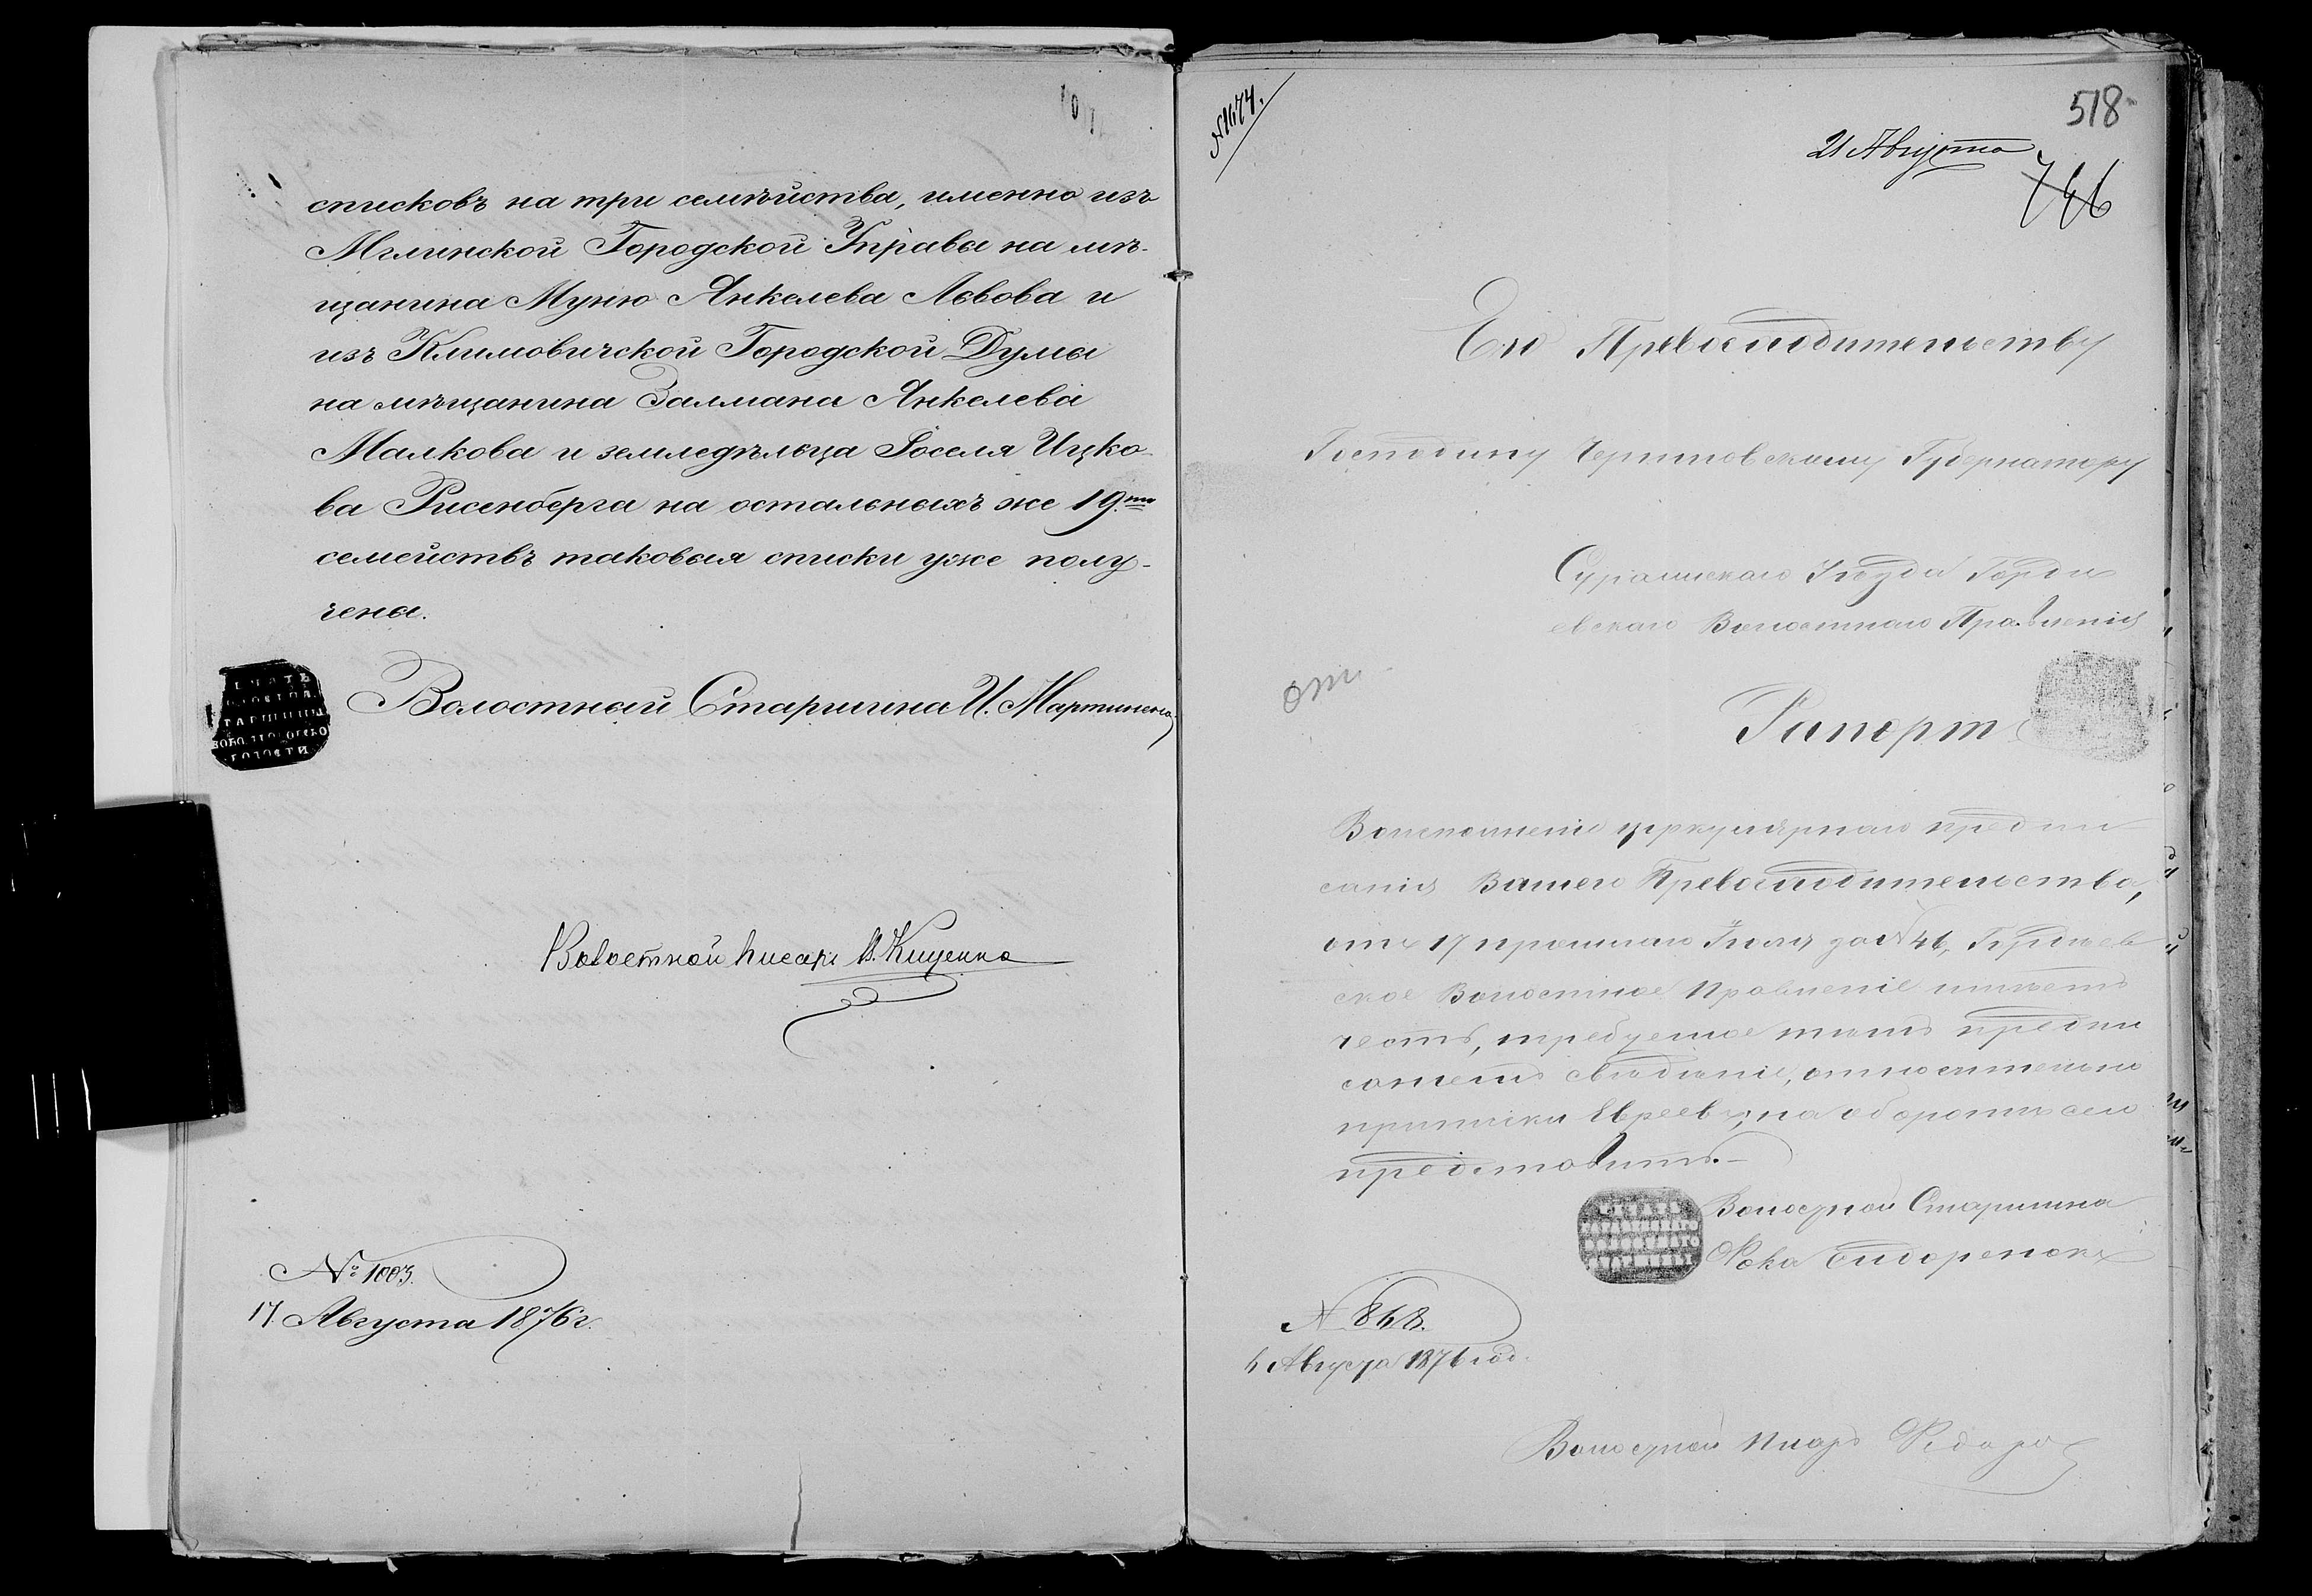 списковъ на три семѣйства, именно изъ
Мглинской Городской Управы на мѣ-
щанина Муню Янкелева Львова и
изъ Климовичской Городской Думы
на мѣщанина Залмана Янкелева
Малкова и земледѣльца Іоселя Ицко-
ва Рисенберга на остальныхъ же 19.ти
семействъ таковыя списки уже полу-
чены.
Волостный Старшина И. Мартиненко
Волостной писарь В. Кищенко
№ 1003.
17. Августа 1876 г.
518
21 Августа
746
Его Превосходительству
Господину Черниговскому Губернатору
Суражскаго Уѣзда Горди
евскаго Волостнаго Правленія
Рапортъ
Воисполненіе циркулярнаго предпи
санія Вашего Превосходительства,
отъ 17 прошлаго Іюля за № 46, Гордѣев
ское Волостное Правленіе имѣетъ
честь, требуемое тѣмъ предпи
саніемъ свѣдѣніе, относительно
приписки Евреевъ, на оборотѣ сего
представить.
Волостной Старшина
Сидоренокъ
№ 868.
Августа 1876 год.
Волостной Писарь